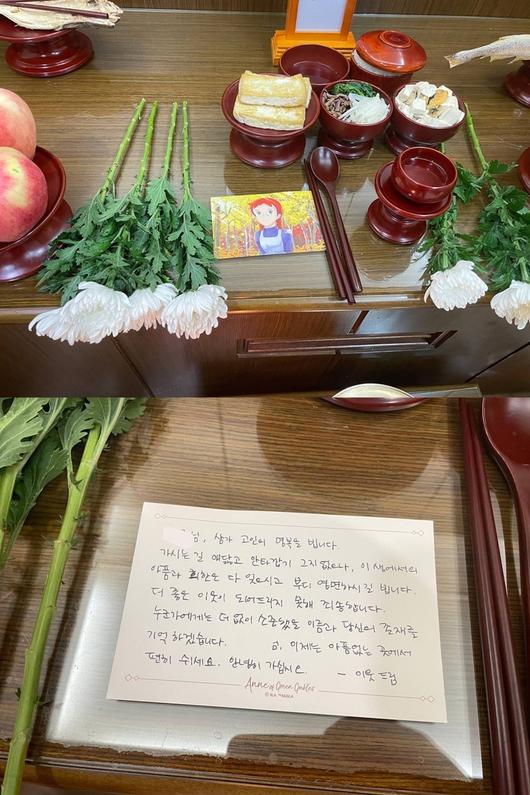 님, 삼가 고인의 명복을 빕니다.
가시는 길 애닯고 안타깝기 그지없으나, 이 생에서의
아픔과 회한은 다 잊으시고 부디 영면하시길 빕니다.
더 좋은 이웃이 되어드리지 못해 죄송합니다.
누군가에게는 더없이 소중했을 이름과 당신의 존재를
기억 하겠습니다. 이제는 아픔없는 곳에서
편히 쉬세요. 안녕히 가십시오. - 이웃 드림
Anne of Green Gables